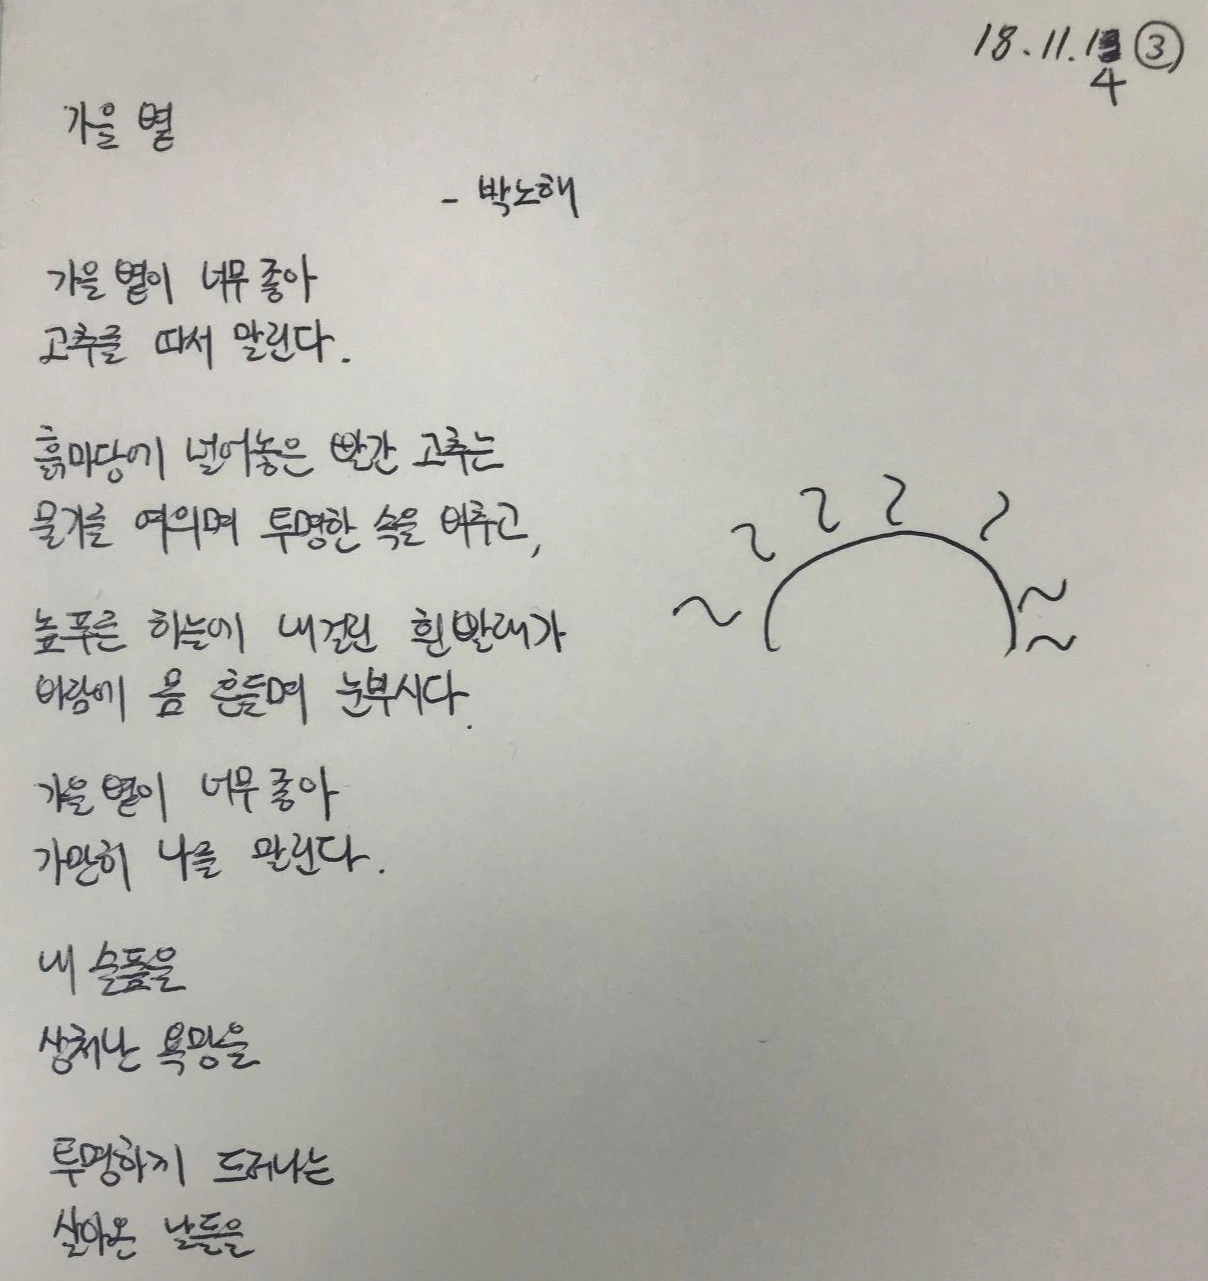 18.11.14 ③
가을 볕
- 박노해
가을 볕이 너무 좋아
고추를 따서 말린다.
흙마당에 널어놓은 빨간 고추는
물기를 여의며 투명한 속을 비추고,
높푸른 하늘에 내걸린 흰 빨래가
바람에 몸 흔들며 눈부시다.
가을 볕이 너무 좋아
가만히 나를 말린다.
내 슬픔을
상처난 욕망을
투명하게 드러나는
살아온 날들을